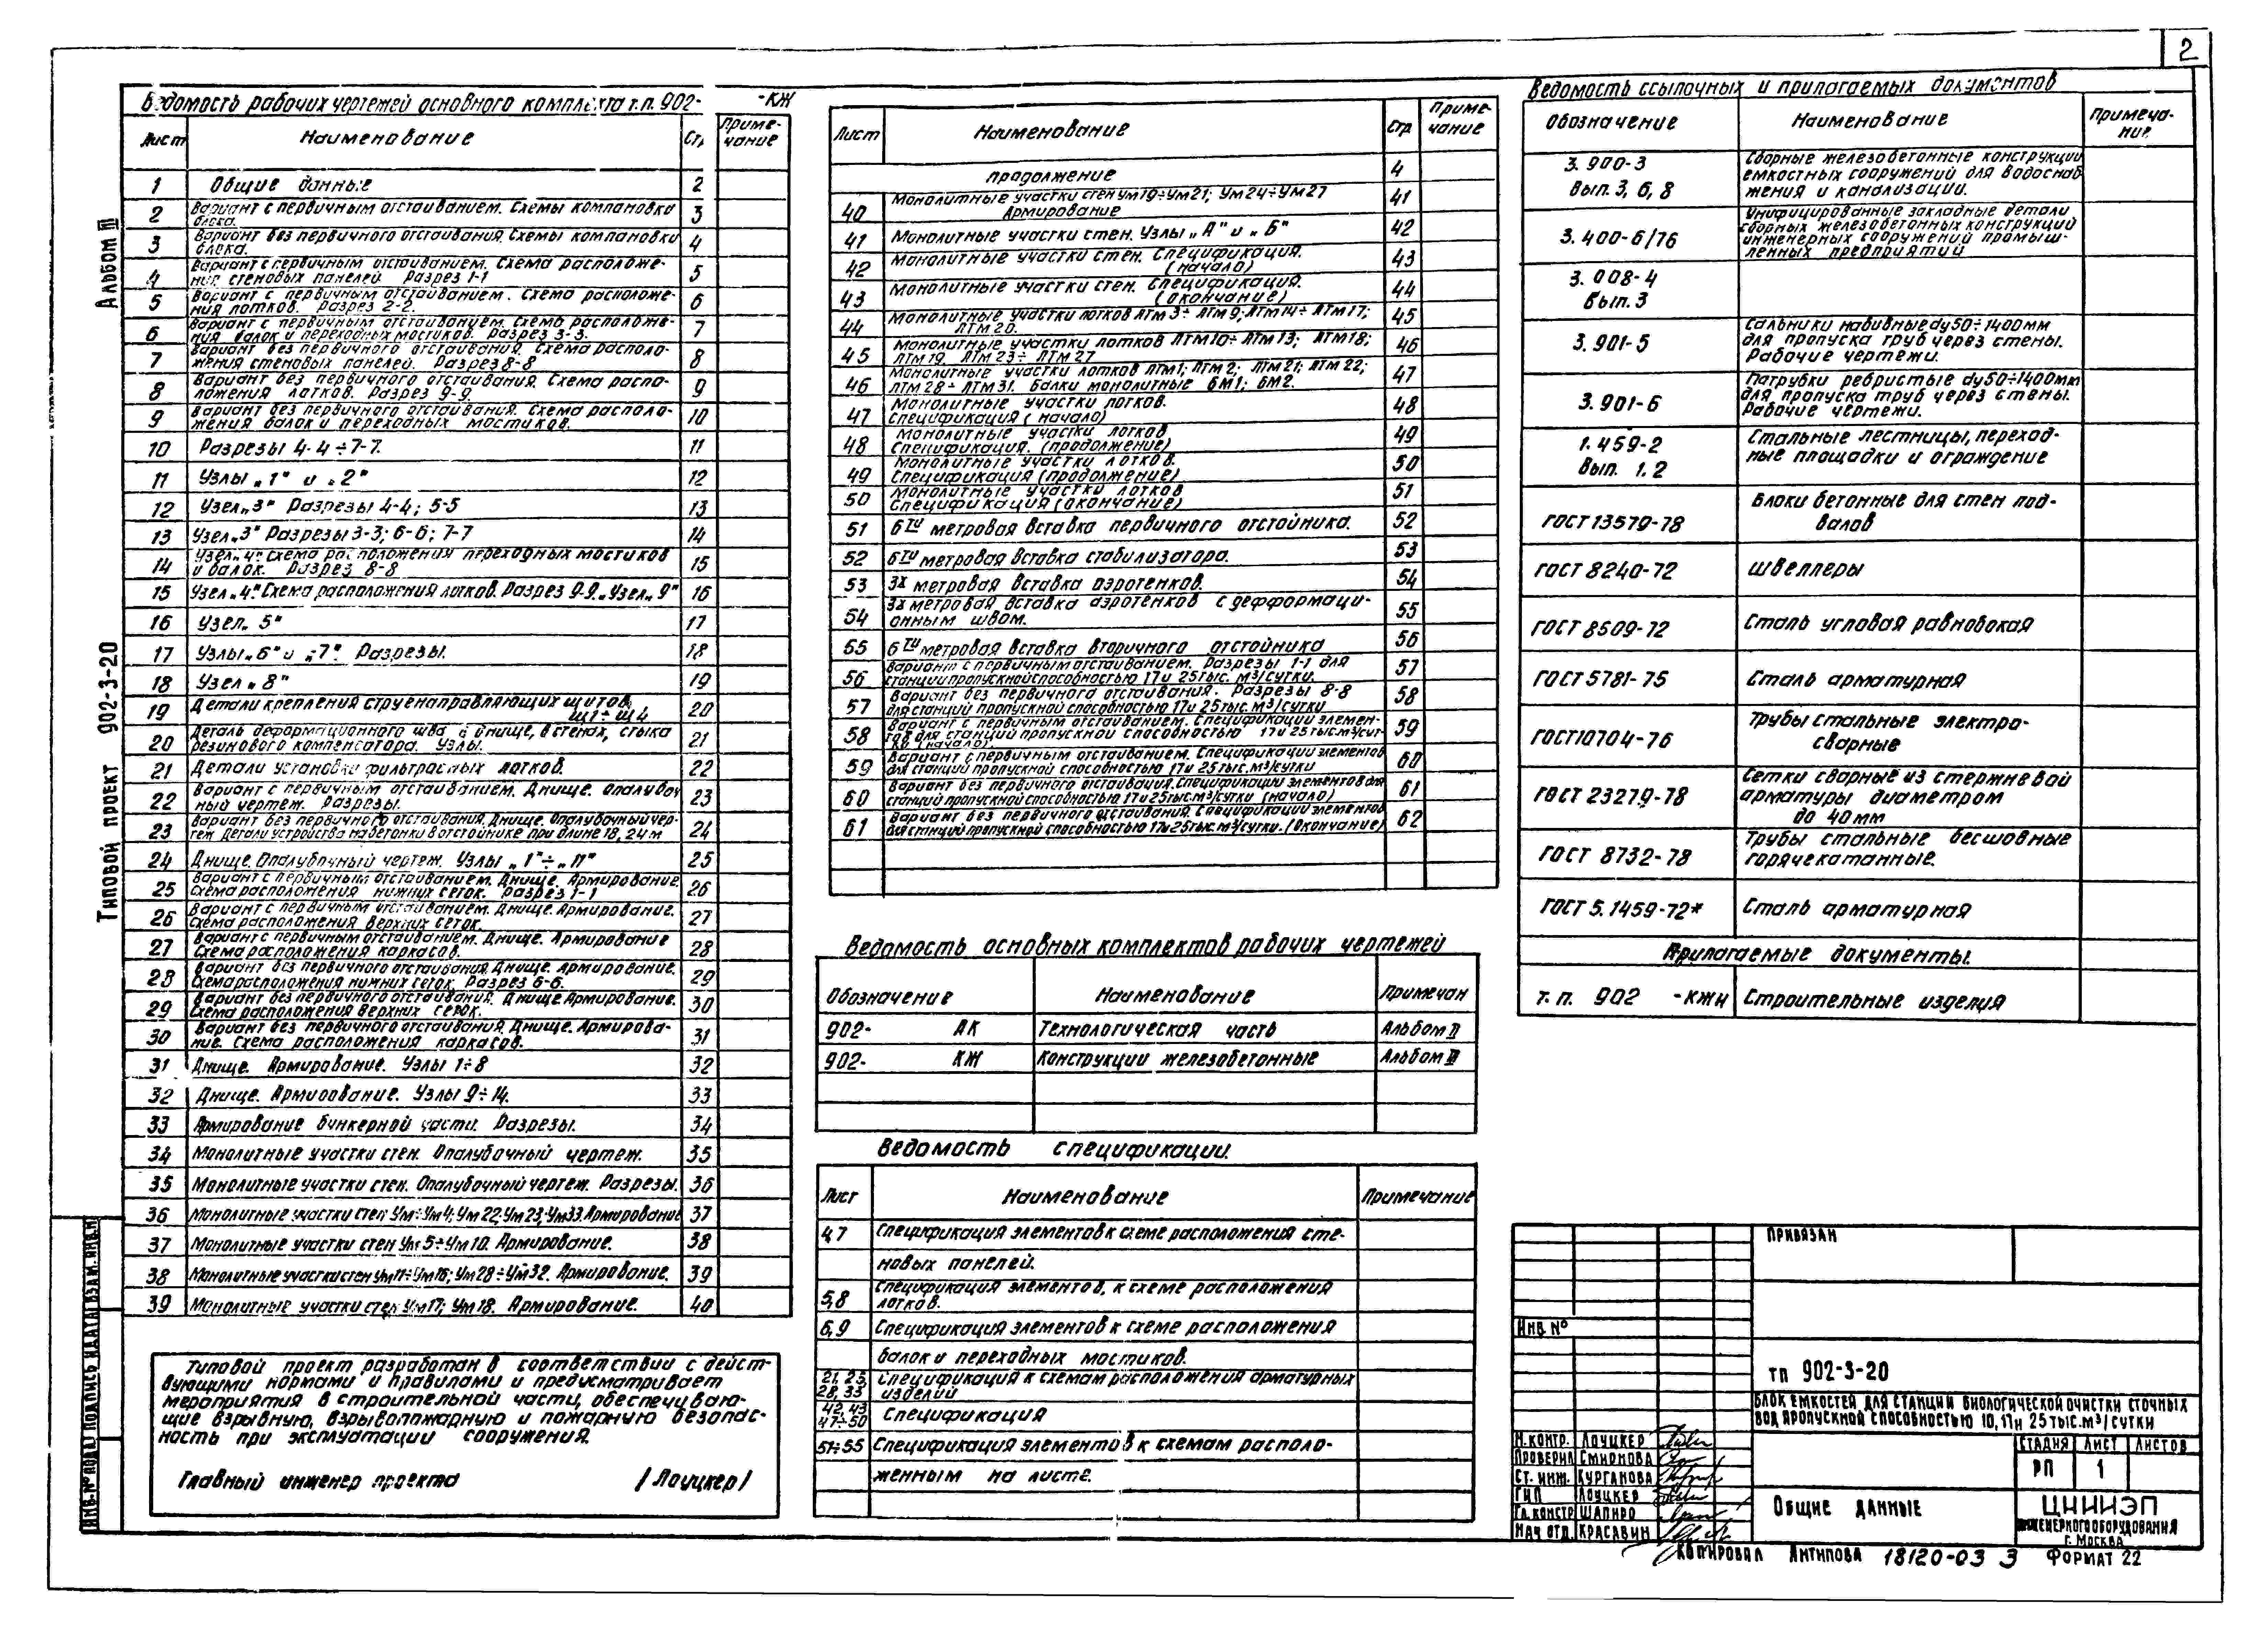 2
Альбом III
Типовой проект 902-3-20
Ведомость рабочих чертежей основного комплекта т.п. 902- -КЖ
Лист Наименование Стр. Примечание
1 Общие данные 2
2 Вариант с первичным отстаиванием. Схемы компановки
блока. 3
3 Вариант без первичного отстаивания. Схемы компановки
блока. 4
4 Вариант с первичным отстаиванием. Схема расположе-
ния стеновых панелей Разрез 1-1 5
5 Вариант с первичным отстаиванием. Схема расположе-
ния лотков. Разрез 2-2. 6
6 Вариант с первичным отстаиванием. Схема расположе-
ния балок и переходных мостиков. Разрез 3-3. 7
7 Вариант без первичного отстаивания. Схема располо-
жения стеновых панелей. Разрез 8-8 8
8 Вариант без первичного отстаивания. Схема распо-
ложения лотков. Разрез 9-9 9
9 Вариант без первичного отстаивания. Схема располо-
жения балок и переходных мостиков. 10
10 Разрезы 4-4÷7-7. 11
11 Узлы „1" и „2" 12
12 Узел „3" Разрезы 4-4; 5-5 13
13 Узел „3" Разрезы 3-3; 6-6; 7-7 14
14 Узел „4" Схема расположения переходных мостиков
и балок. Разрез 8-8 15
15 Узел „4". Схема расположения лотков. Разрез 9-9. „Узел „9" 16
16 Узел „5" 17
17 Узлы „6" и „7". Разрезы. 18
18 Узел „8" 19
19 Детали крепления струенаправляющих щитов
Щ1÷Щ4 20
20 Деталь деформационного шва в днище, в стенах, стыка
резинового компенсатора. Узлы. 21
21 Детали установки фильтрасных лотков. 22
22 Вариант с первичным отстаиванием. Днище. Опалубоч
ный чертеж. Разрезы. 23
23 Вариант без первичного отстаивания. Днище. Опалубочный чер-
теж Детали устройства набетонки в отстойнике при длине 18, 24м 24
24 Днище. Опалубочный чертеж. Узлы „1"÷„11" 25
25 Вариант с первичным отстаиванием. Днище. Армирование.
Схема расположения нижних сеток. Разрез 1-1 26
26 Вариант с первичным отстаиванием. Днище. Армирование.
Схема расположения верхних сеток. 27
27 Вариант с первичным отстаиванием. Днище. Армирование
Схема расположения каркасов. 28
28 Вариант без первичного отстаивания. Днище. Армирование.
Схема расположения нижних сеток. Разрез 6-6. 29
29 Вариант без первичного отстаивания. Днище Армирование.
Схема расположения верхних сеток. 30
30 Вариант без первичного отстаивания. Днище. Армирова-
ние. Схема расположения каркасов. 31
31 Днище. Армирование. Узлы 1÷8 32
32 Днище. Армирование. Узлы 9÷14. 33
33 Армирование бункерной части. Разрезы. 34
34 Монолитные участки стен. Опалубочный чертеж. 35
35 Монолитные участки стен. Опалубочный чертеж. Разрезы. 36
36 Монолитные участки стен Ум÷Ум4; Ум22; Ум23; Ум33. Армирование 37
37 Монолитные участки стен Ум5÷Ум10. Армирование. 38
38 Монолитные участки стен Ум11÷Ум16; Ум28÷Ум32. Армирование. 39
39 Монолитные участки стен Ум17; Ум18. Армирование. 40
Типовой проект разработан в соответствии с дейст-
вующими нормами и правилами и предусматривает
мероприятия в строительной части, обеспечиваю-
щие взрывную, взрывопожарную и пожарную безопас-
ность при эксплуатации сооружения.
Главный инженер проекта /Лоуцкер/
Лист Наименование Стр Примечание
продолжение 4
40 Монолитные участки стен Ум19÷Ум21; Ум24÷Ум27
Армирование 41
41 Монолитные участки стен. Узлы „А" и „Б" 42
42 Монолитные участки стен. Спецификация.
(начало) 43
43 Монолитные участки стен. Спецификация.
(окончание) 44
44 Монолитные участки лотков ЛТм3÷ЛТм9; ЛТм14÷ЛТм17;
ЛТм20. 45
45 Монолитные участки лотков ЛТм10÷ЛТм13; ЛТм18;
ЛТм19, ЛТм23÷ЛТм27 46
46 Монолитные участки лотков ЛТм1; ЛТм2; ЛТм21; ЛТм22;
ЛТм28÷ЛТм31. Балки монолитные БМ1; БМ2. 47
47 Монолитные участки лотков.
Спецификация (начало) 48
48 Монолитные участки лотков
Спецификация. (продолжение) 49
49 Монолитные участки лотков.
Спецификация (продолжение) 50
50 Монолитные участки лотков
Спецификация (окончание) 51
51 6ти метровая вставка первичного отстойника. 52
52 6ти метровая вставка стабилизатора. 53
53 3х метровая вставка аэротенков. 54
54 3х метровая вставка аэротенков с дефформаци-
онным швом. 55
55 6ти метровая вставка вторичного отстойника 56
56 Вариант с первичным отстаиванием. Разрезы 1-1 для
станции пропускной способностью 17 и 25 тыс. м3/сутки. 57
57 Вариант без первичного отстаивания. Разрезы 8-8
для станций пропускной способностью 17 и 25 тыс. м3/сутки 58
58 Вариант с первичным отстаиванием. Спецификации элемен-
тов для станций пропускной способностью 17 и 25 тыс м3/сут-
ки (начало). 59
59 Вариант с первичным отстаиванием. Спецификации элементов
для станций пропускной способностью 17 и 25 тыс. м3/сутки 60
60 Вариант без первичного отстаивания. Спецификации элементов для
станций пропускной способностью 17 и 25 тыс. м3/сутки (начало) 61
61 Вариант без первичного отстаивания. Спецификации элементов
для станций пропускной способностью 17 и 25 тыс. м3/сутки. (Окончание) 62
Ведомость основных комплектов рабочих чертежей
Обозначение Наименование Примечан
902- АК Технологическая часть Альбом II
902- КЖ Конструкции железобетонные Альбом III
Ведомость спецификации.
Лист Наименование Примечание
4,7 Спецификация элементов к схеме расположения сте-
новых панелей.
5,8 Спецификация элементов, к схеме расположения
лотков.
6,9 Спецификация элементов к схеме расположения
балок и переходных мостиков.
21, 23 Спецификация к схемам расположения арматурных
28, 33 изделий
42, 43
47÷50 Спецификация
51÷55 Спецификация элементов к схемам располо-
женным на листе.
Ведомость ссылочных и прилагаемых документов
Обозначение Наименование Примечание
3. 900-3 Сборные железобетонные конструкции
Вып. 3, 6, 8 емкостных сооружений для водоснаб
жения и канализации.
3. 400-6/76 Унифицированные закладные детали
сборных железобетонных конструкций
инженерных сооружений промыш-
ленных предприятий
3. 008-4
Вып. 3
3. 901-5 Сальники набивные dу50÷1400мм
для пропуска труб через стены.
Рабочие чертежи.
3. 901-6 Патрубки ребристые dу50÷1400мм
для пропуска труб через стены.
Рабочие чертежи.
1. 459-2 Стальные лестницы, переход-
Вып. 1. 2 ные площадки и ограждение
ГОСТ 13579-78 Блоки бетонные для стен под-
валов
ГОСТ 8240-72 Швеллеры
ГОСТ 8509-72 Сталь угловая равнобокая
ГОСТ 5781-75 Сталь арматурная
ГОСТ 10704-76 Трубы стальные электро-
сварные
ГОСТ 23279-78 Сетки сварные из стержневой
арматуры диаметром
до 40мм
ГОСТ 8732-78 Трубы стальные бесшовные
горячекатанные.
ГОСТ 5.1459-72* Сталь арматурная
Прилагаемые документы.
т. п. 902 -КЖИ Строительные изделия
Привязан
Инв. №
ТП 902-3-20
Блок емкостей для станции биологической очистки сточных
вод пропускной способностью 10, 17 и 25 тыс. м3/сутки
Н. контр. Лоуцкер
Проверил Смирнова
Ст. инж. Курганова
ГИП Лоуцкер
Гл. констр Шапиро
Нач отд. Красавин
Стадия Лист Листов
РП 1
Общие данные
ЦНИИЭП
инженерного оборудования
г. Москва
Копировал Антипова 18120-03 3 Формат 22
Инв. № подл. Подпись и дата Взам. инв. №